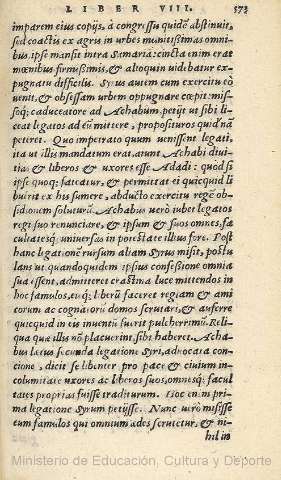 LIBER VIII. 573
imparem eius copijs, à congressu quidẽ abstinuit,
sed coactis ex agris in urbes munitissimas omni
bus, ipse mansit intra Samaria: cincta enim erat
mœnibus firmissimis, & alioquin uidebatur ex
pugnatu difficilis. Syrus autem cum exercitu eò
uenit, & obsessam urbem oppugnare cœpit: mis=
soq; caduceatore ad Achabum, petijt ut sibi li=
ceat legatos ad eũ mittere, proposituros quid nã
peteret. Quo impetrato quum uenissent legati,
ita ut illis mandatum erat, aiunt Achabi diui
tias & liberos & uxores esse Adadi: quòd si
ipse quoq; fateatur, & permittat ei quicquid li
buerit ex his sumere, abducto exercitu regẽ ob=
sidionem soluturũ. Achabus uerò iubet legatos
regi suo renunciare, & ipsum & suos omnes, fa
cultatesq; uniuersas in potestate illius fore. Post
hanc legationẽ rursum aliam Syrus misit, postu
lans ut quandoquidem ipsius confessione omnia
sua essent, admitteret crastina luce mittendos in
hoc famulos, eisq; liberũ faceret regiam & ami
corum ac cognatorũ domos scrutari, & auferre
quicquid in eis inuentũ fuerit pulcherrimũ. Reli=
qua quæ illis nõ placuerint, sibi haberet. Acha=
bus læsus secunda legatione Syri, aduocata con=
cione, dicit se libenter pro pace & ciuium in=
columitate uxores ac liberos suos, omnesq; facul
tates proprias fuisse traditurum. Hoc enim pri
ma legatione Syrum petijsse. Nunc uerò misisse
eum famulos qui omnium ædes scrutẽtur, & ni=
hil in
Ministerio de Educación, Cultura y Deporte